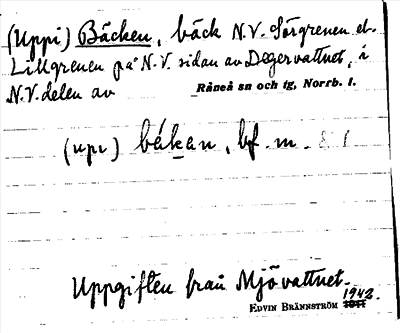 (Uppi) Bäcken, bäck N.V. Sörgrenen el.
Lillgrenen på N.V. sidan av Degervattnet, i
N.V. delen av Råneå sn och tg, Norrb. l.
(upi) bäkan, bf. m.
Uppgiften från Mjövattnet.
1942.
EDVIN BRÄNNSTRÖM 1941